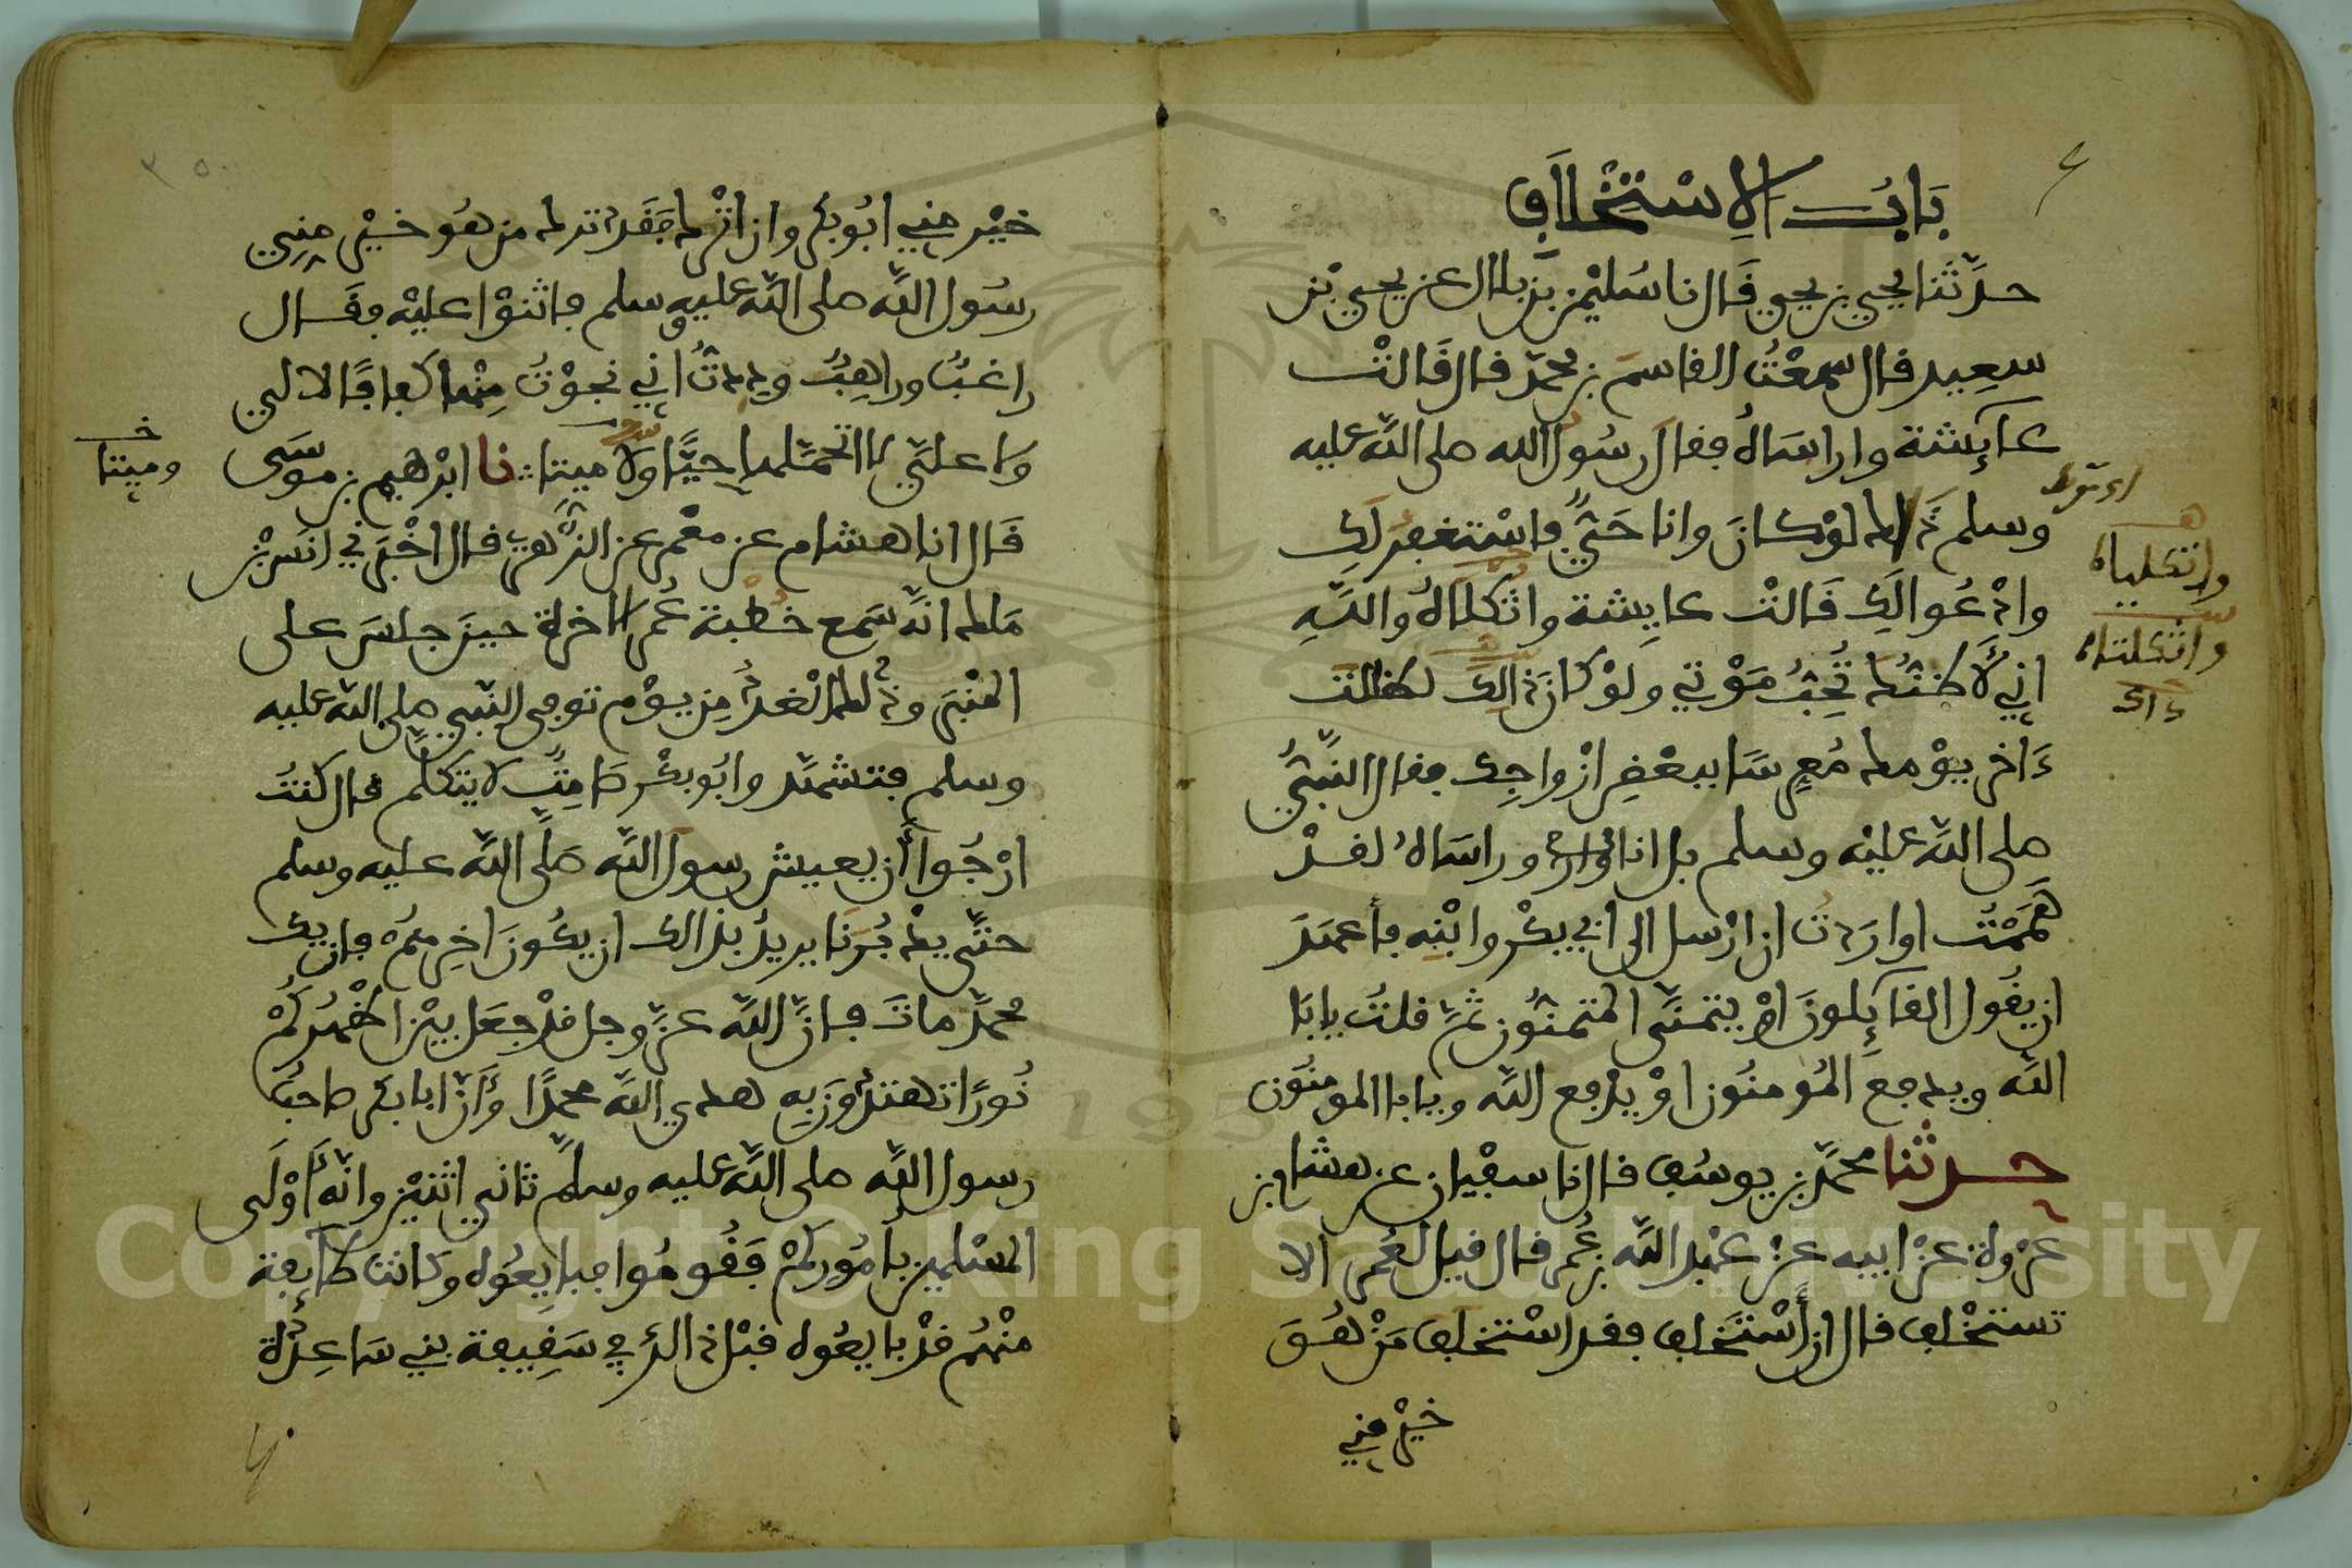 بَابُ الاِسْتِخْلَافِ
حدَّثَنا يحيى بن يحيى قَال نا سُلَيْمٰن بْن بلال عن يحيى بْن
سعِيد قال سمعْتُ القاسمَ بن محمّد قال قَالتْ
عايِشة وا راسَاهُ فقال رسُول الله صلى اللَّه عليه
وسلم ذَاكِ لوْ كانَ وانا حَيٌّ فاسْتغفِرُ لَكِ
وادْعُوا لَكِ قَالتْ عايِشة واثكلاهُ واللَّهِ
انِّي لَأَظنُّكَ تُحِبُّ مَوْتي ولوْ كانَ ذَالِكَ لظللتَ
ءَاخر يوْمِكَ مُعرِسًا ببعْضِ ازْواجِكَ فقال النَّبيُّ
صلى اللَّه عليْه وسلم بل انا وارَاسَاهُ لقدْ
هَمَمْتُ او اردْتُ ان ارْسل الى ابي بكْر وابْنِه فأعهَدَ
ان يقُول القايِلونَ اوْ يتمنَّى المتمنُّون ثمّ قلتُ يابَا
اللَّه ويدفع المُومنُون اوْ يدْفع اللَّه ويابا المومنُون
حدثنا محمَّد بن يوسُف قال نا سفْيان عن هشام بن
عُرْوة عنْ ابيه عنْ عبْد اللَّه بن عُمر قال قيل لعُمر الا
تستخْلِف قال ان أسْتَخلِف فقد اسْتخلف مَنْ هُوَ
خيْر مِني
ومَيتا
خيْر مِني ابُو بكر وان اتْرك فقَد ترك من هُو خيْر مِنِّي
رسُول اللَّه صلى اللَّه عليْه وسلم فاثنوْا عليْه فقَال
راغبٌ وراهِبٌ وددتُ اني نجوْتُ مِنْها كفافًا لا لي
ولا عليَّ لا اتحمّلها حيًّا ولا ميتا نا ابْرٰهيم بن موسَى
قَال انا هشام عن معْمر عن الزُّهري قال اخْبرَني انَس بْن
مَالك انَّه سَمع خطْبة عُمر الاخرة حينَ جلسَ على
المنْبَر وذَلكَ الْغدُ مِن يوْم توفي النَّبي صلى اللَّه عليه
وسلم فتشهَّد وابُو بكْر صَامِتٌ لا يتكلَّم قال كنتُ
ارْجُوا أن يعيش رسول اللَّه صَلَّى اللَّه عليه وسلم
حتَّى يدْبُرَنا يريدُ بذالك ان يكُونَ اخِرهُمْ فان يك
محمّدٌ ماتَ فانَّ اللَّه عزَّ وجل قدْ جعَل بيْن اظْهُرِكُمْ
نُورًا تهتدُونَ به هدى اللَّه محمدًا وَأنَّ ابا بكر صاحبُ
رسول اللَّه صلى اللَّه عليه وسلم ثاني اثنيْن وانّه أَوْلَى
المسْلمين بأُمُورِكمْ فَقُومُوا فبايِعُوه وكانت طايِفة
منْهُم قدْ بايعُوه قبْل ذالك في سَقِيفة بني سَاعِدة